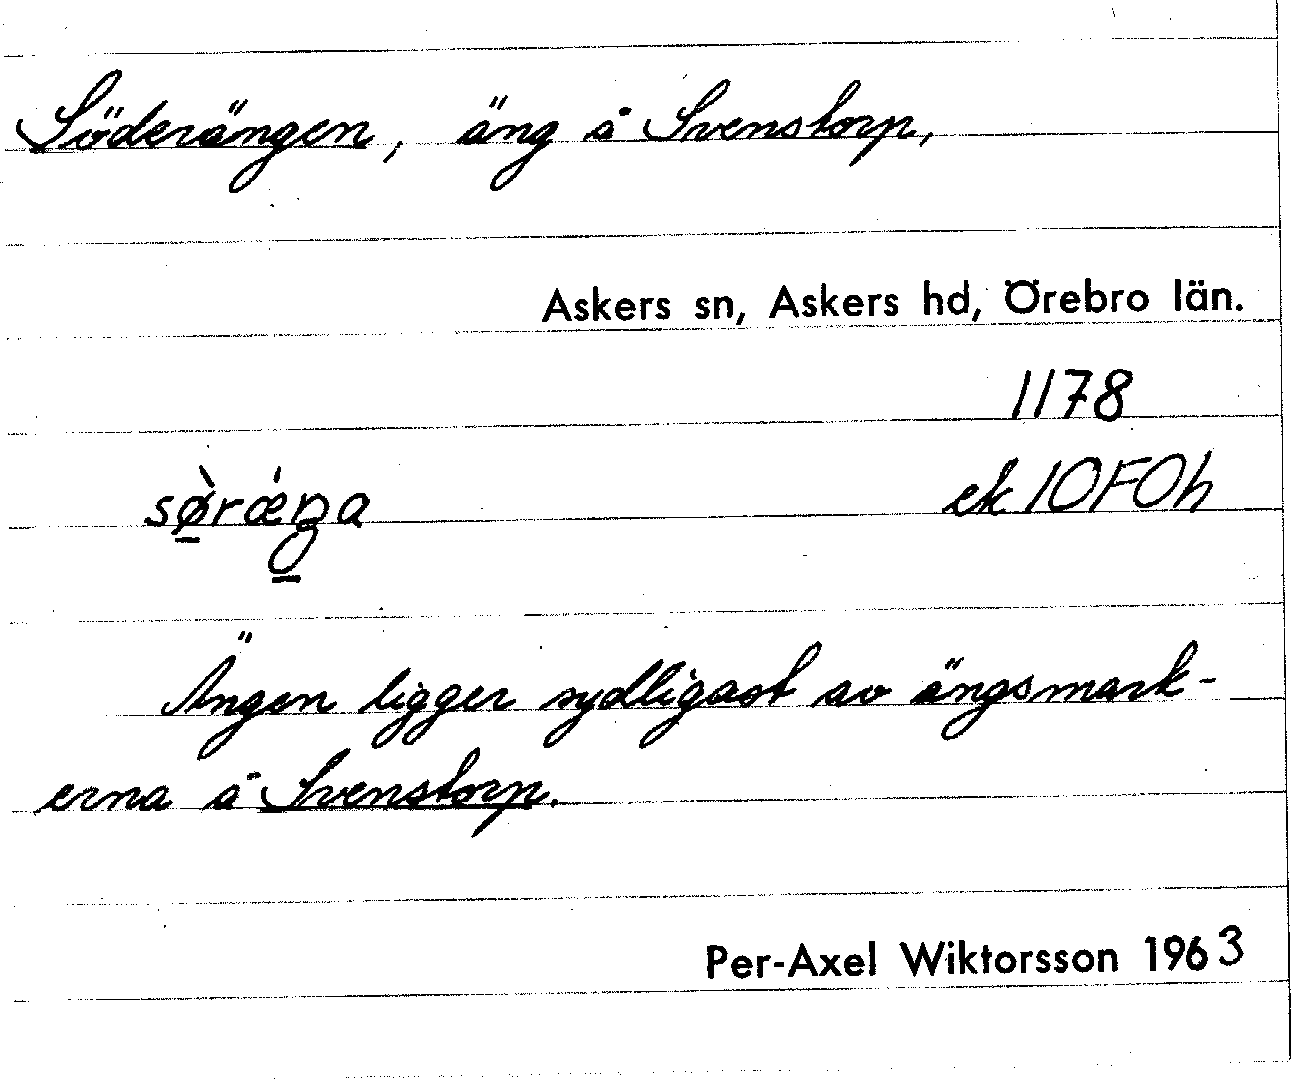 Söderängen, äng å Svenstorp,
Askers sn, Askers hd, Örebro län.
1178
sø̠̀rǽŋ̠a ek 10F0h
Ängen ligger sydligast av ängsmark-
erna å Svenstorp.
Per-Axel Wiktorsson 1963